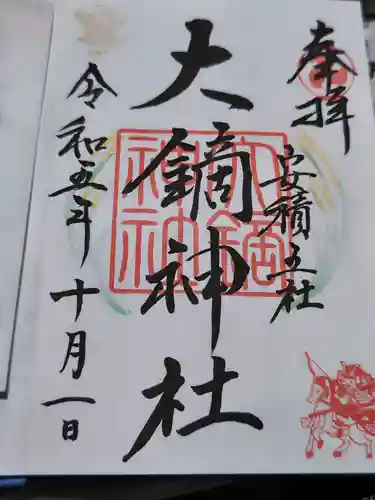 奉拝
安積五社
大鏑神社
令和五年十月一日